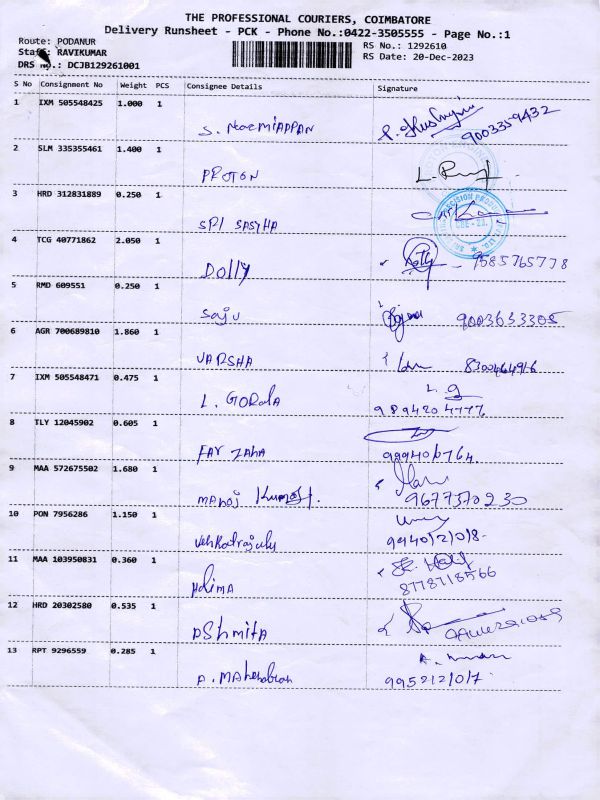 THE PROFESSIONAL COURIERS, COIMBATORE
Delivery Runsheet - PCK - Phone No.:0422-3505555 - Page No.:1
Route: PODANUR
RS No.: 1292610
Staff: RAVIKUMAR
RS Date: 20-Dec-2023
DRS No.: DCJB129261001
S No Consignment No Weight PCS Consignee Details Signature
1 IXM 505548425 1.000 1
S. 9003359432
2 SLM 335355461 1.400 1
PROTON
3 HRD 312831889 0.250 1
SRI SASYHA
4 TCG 40771862 2.050 1
DOLLY 9585765778
5 RMD 609551 0.250 1
Saju 9003653305
6 AGR 700689810 1.860 1
VARSHA 8300464916
7 IXM 505548471 0.475 1
L. G
L. GORala 9894204777
8 TLY 12045902 0.605 1
FAR ZAHA
9 MAA 572675502 1.680 1
MANOJ Kumar 9677570230
10 PON 7956286 1.150 1
Venkatrajulu
11 MAA 103950831 0.360 1
HaliMA 8778718566
12 HRD 20302580 0.535 1
AShmitA
13 RPT 9296559 0.285 1
A.